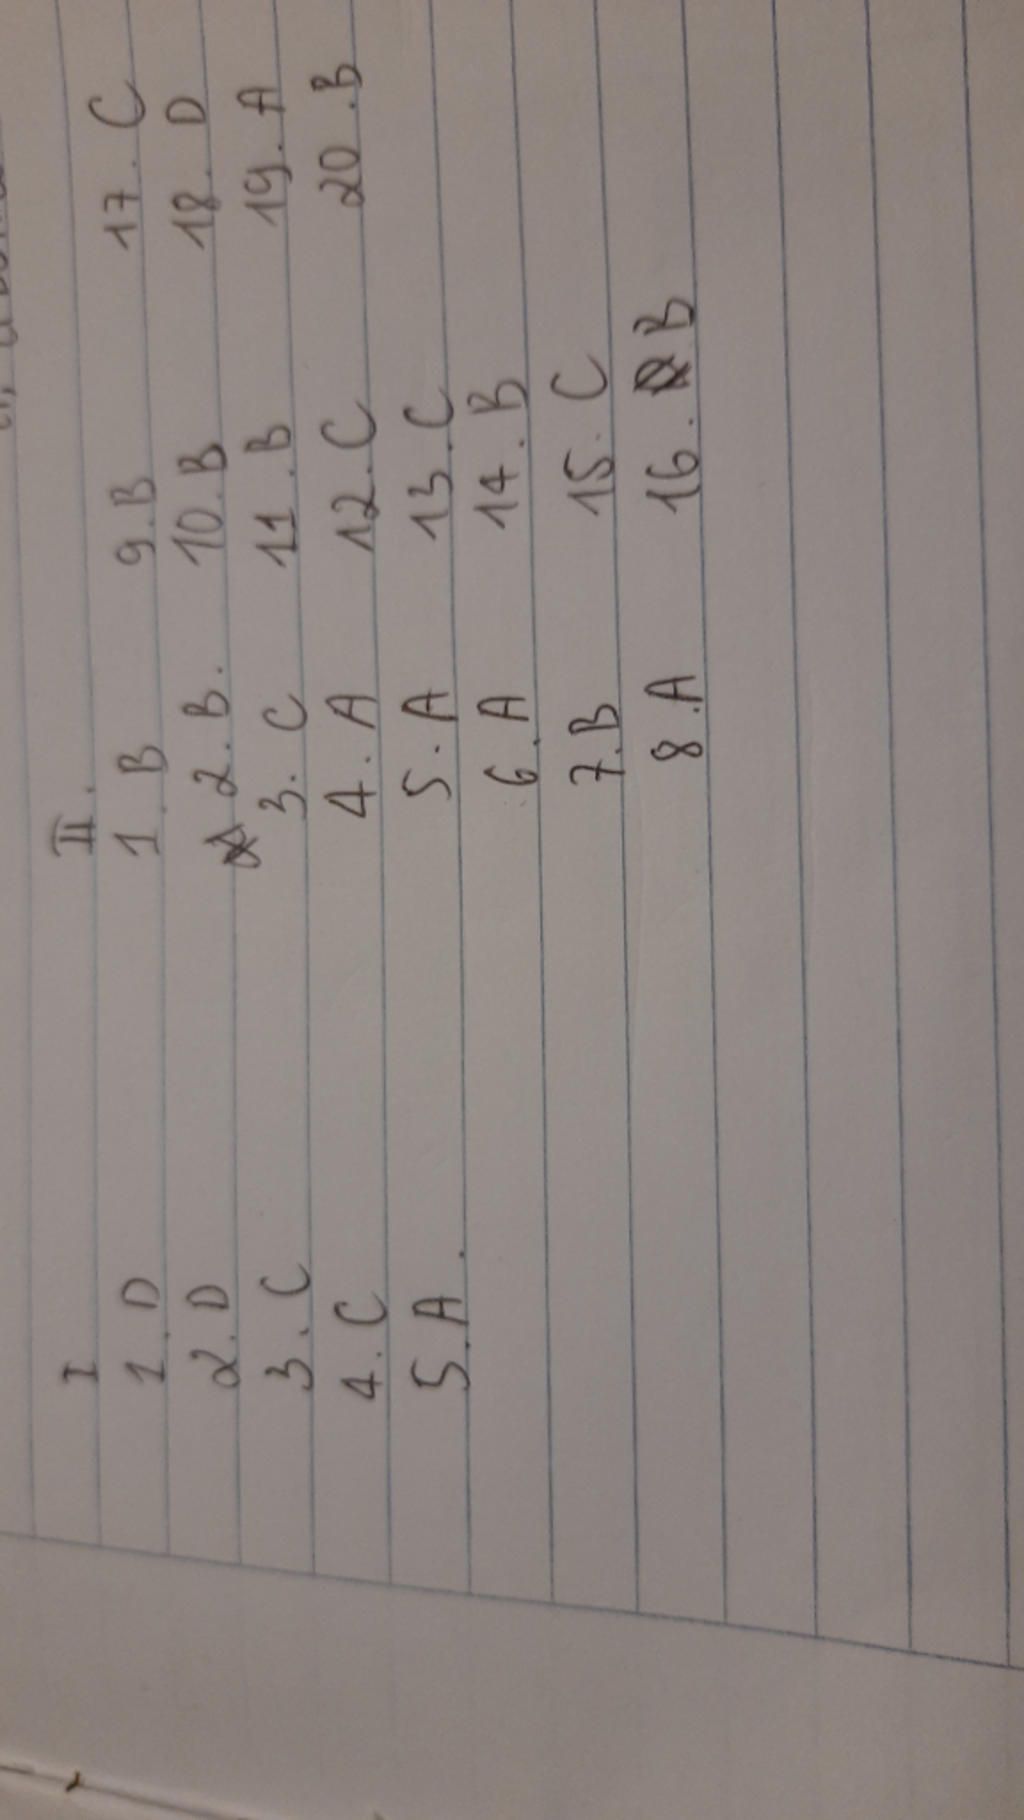 I II.
1. D 1. B 9. B 17. C
2. D 2. B. 10. B 18. D
3. C 3. C 11. B 19. A
4. C 4. A 12. C 20. B
5. A. 5. A 13. C
6. A 14. B
7. B 15. C
8. A 16. B